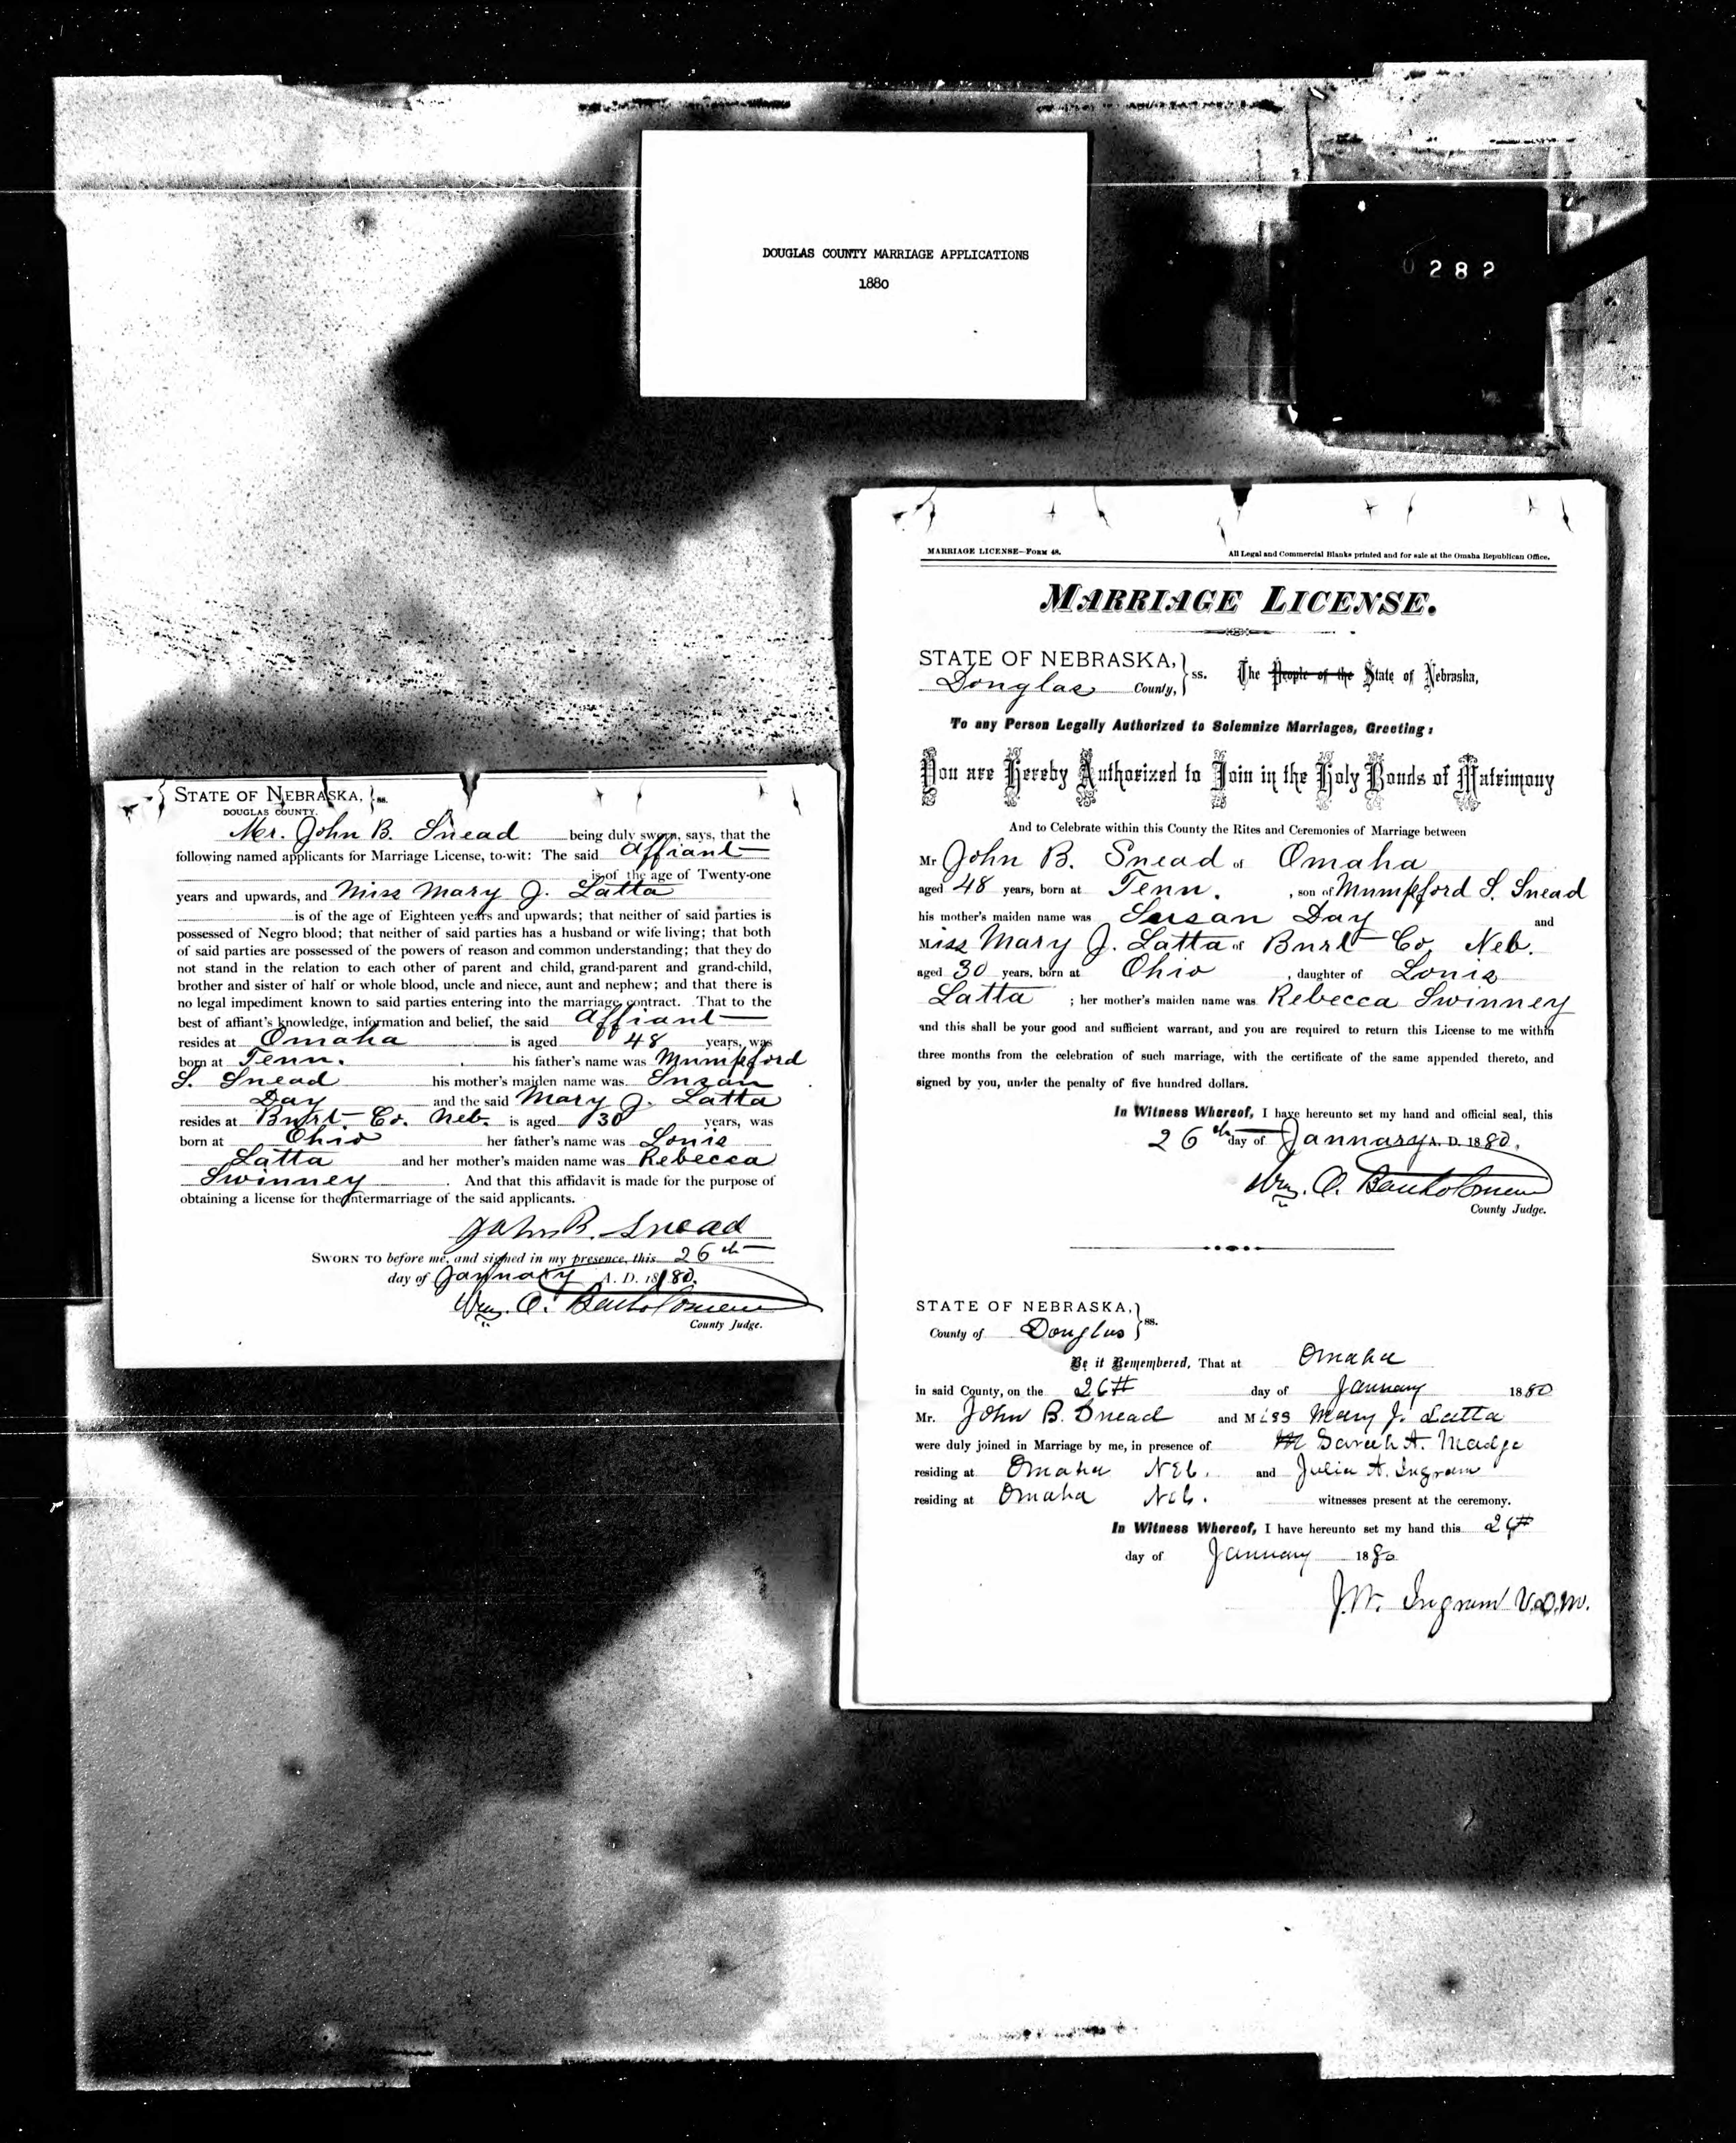 DOUGLAS COUNTY MARRIAGE APPLICATIONS
1880
0282
STATE OF NEBRASKA, } ss.
DOUGLAS COUNTY.
Mr. John B. Snead being duly sworn, says, that the
following named applicants for Marriage License, to-wit: The said Affiant
is of the age of Twenty-one
years and upwards, and Miss Mary J. Latta
is of the age of Eighteen years and upwards; that neither of said parties is
possessed of Negro blood; that neither of said parties has a husband or wife living; that both
of said parties are possessed of the powers of reason and common understanding; that they do
not stand in the relation to each other of parent and child, grand-parent and grand-child,
brother and sister of half or whole blood, uncle and niece, aunt and nephew; and that there is
no legal impediment known to said parties entering into the marriage contract. That to the
best of affiant's knowledge, information and belief, the said Affiant
resides at Omaha is aged 48 years, was
born at Tenn. his father's name was Mumpford
S. Snead his mother's maiden name was Susan
Day and the said Mary J. Latta
resides at Burt Co. Neb. is aged 30 years, was
born at Ohio her father's name was Louis
Latta and her mother's maiden name was Rebecca
Swinney. And that this affidavit is made for the purpose of
obtaining a license for the intermarriage of the said applicants.
John B. Snead
SWORN TO before me, and signed in my presence, this 26th
day of January A. D. 1880.
Wm. O. Bartholomew
County Judge.
MARRIAGE LICENSE—FORM 48. All Legal and Commercial Blanks printed and for sale at the Omaha Republican Office.
MARRIAGE LICENSE.
STATE OF NEBRASKA, } ss. The People of the State of Nebraska,
Douglas County,
To any Person Legally Authorized to Solemnize Marriages, Greeting:
You are Hereby Authorized to Join in the Holy Bonds of Matrimony
And to Celebrate within this County the Rites and Ceremonies of Marriage between
Mr John B. Snead of Omaha
aged 48 years, born at Tenn. , son of Mumpford S. Snead
his mother's maiden name was Susan Day and
Miss Mary J. Latta of Burt Co. Neb.
aged 30 years, born at Ohio , daughter of Louis
Latta ; her mother's maiden name was Rebecca Swinney
and this shall be your good and sufficient warrant, and you are required to return this License to me within
three months from the celebration of such marriage, with the certificate of the same appended thereto, and
signed by you, under the penalty of five hundred dollars.
In Witness Whereof, I have hereunto set my hand and official seal, this
26th day of January A. D. 1880.
Wm. O. Bartholomew
County Judge.
STATE OF NEBRASKA, } ss.
County of Douglas
Be it Remembered, That at Omaha
in said County, on the 26th day of January 1880
Mr. John B. Snead and Miss Mary J. Latta
were duly joined in Marriage by me, in presence of Sarah A. Madge
residing at Omaha Neb. and Julia A. Ingram
residing at Omaha Neb. witnesses present at the ceremony.
In Witness Whereof, I have hereunto set my hand this 26th
day of January 1880
J.W. Ingram V.D.M.